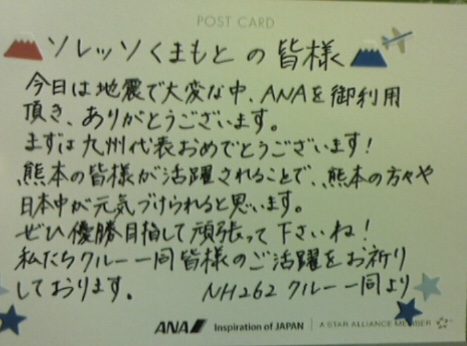 POST CARD
ソレッソくまもとの皆様
今日は地震で大変な中、ANAを御利用
頂き、ありがとうございます。
まずは九州代表おめでとうございます！
熊本の皆様が活躍されることで、熊本の方々や
日本中が元気づけられると思います。
ぜひ優勝目指して頑張って下さいね！
私たちクルー一同皆様のご活躍をお祈り
しております。 NH262 クルー一同より
ANA Inspiration of JAPAN A STAR ALLIANCE MEMBER